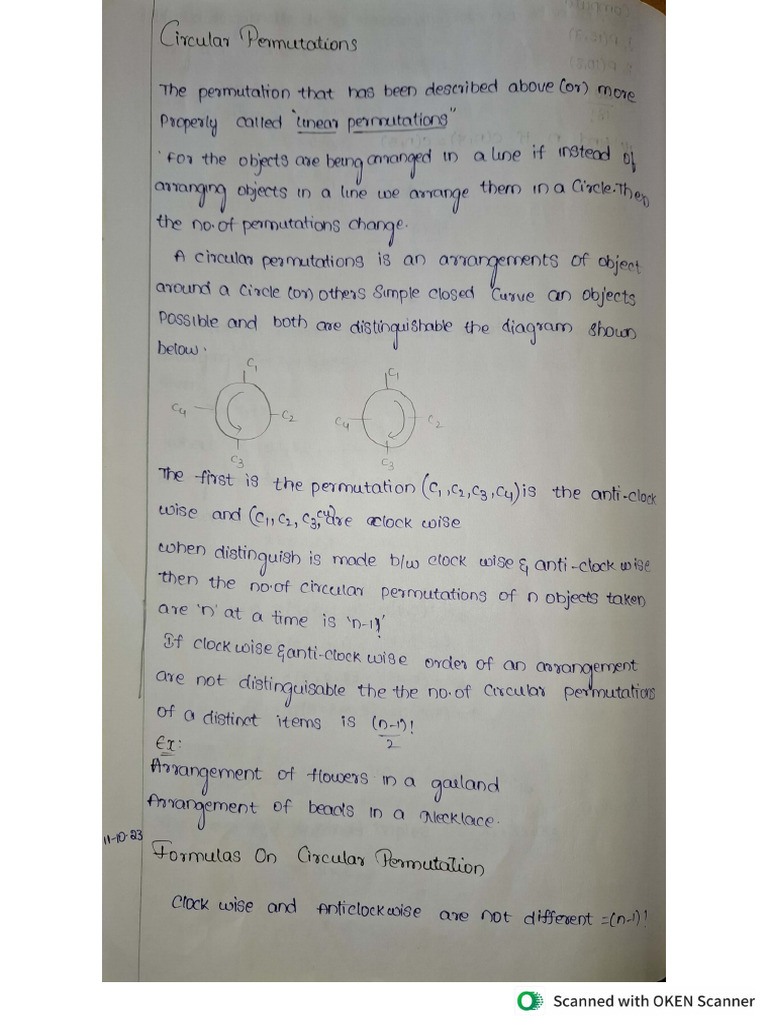 Circular Permutations
The permutation that has been described above (or) more
Properly called "linear permutations"
For the objects are being arranged in a line if instead of
arranging objects in a line we arrange them in a Circle. Then
the no. of permutations change.
A circular permutations is an arrangements of object
around a circle (or) others simple closed curve an objects
Possible and both are distinguishable the diagram shown
below.
C1 C1
C4 C2 C4 C2
C3 C3
The first is the permutation (C1, C2, C3, C4) is the anti-clock
wise and (C1, C2, C3, C4) are clock wise
when distinguish is made b/w clock wise & anti-clock wise
then the no. of circular permutations of n objects taken
are 'n' at a time is 'n-1!'
If clock wise & anti-clock wise order of an arrangement
are not distinguisable the the no. of circular permutations
of a distinct items is (n-1)!/2
Ex:
Arrangement of flowers in a garland
Arrangement of beads in a Necklace.
11-10-23
Formulas On Circular Permutation
Clock wise and Anticlockwise are not different =(n-1)!
Scanned with OKEN Scanner